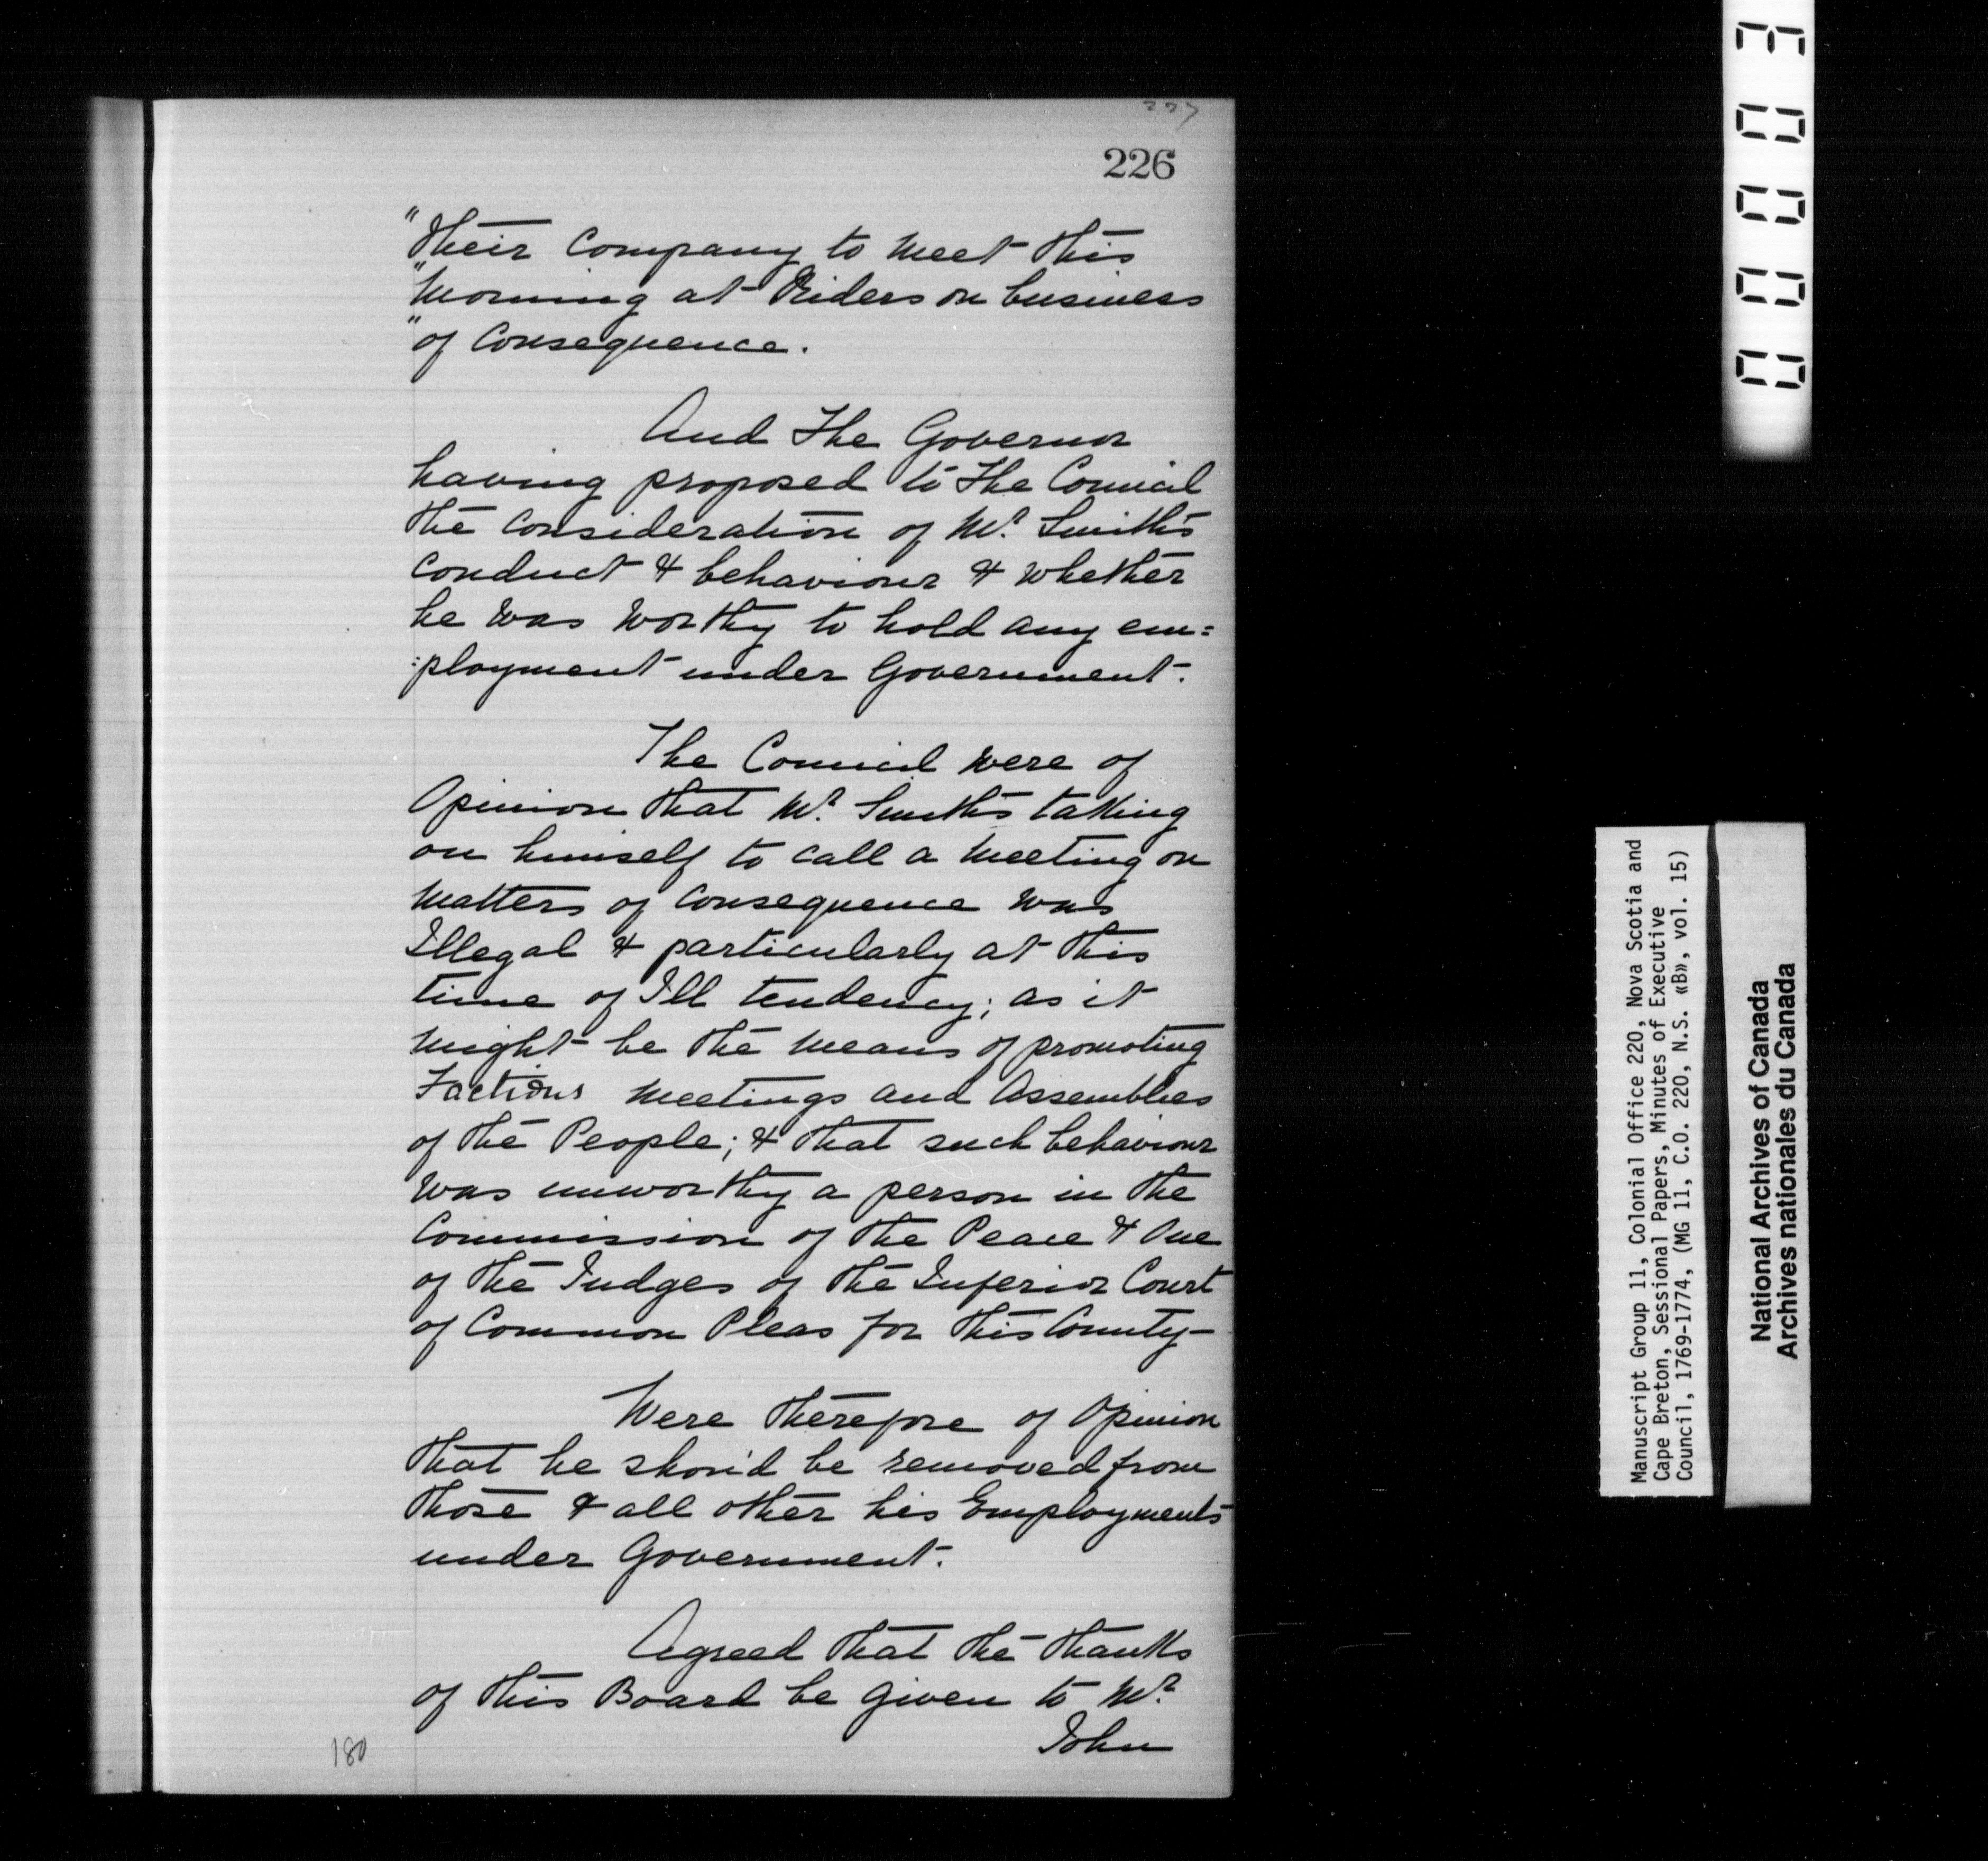 227
226
"Their Company to meet this
"Morning at Riders on business
"of Consequence.
And The Governor
having proposed to The Council
the Consideration of Mr. Smith's
Conduct & behaviour & whether
he was worthy to hold any em=
:ployment under Government.
The Council were of
Opinion that Mr. Smith's taking
on himself to call a Meeting on
Matters of Consequence was
Illegal & particularly at this
time of Ill tendency; as it
might be the means of promoting
Factious Meetings and Assemblies
of the People; & that such behaviour
was unworthy a person in the
Commission of the Peace & One
of the Judges of the Inferior Court
of Common Pleas for this County—
Were therefore of Opinion
that he shou'd be removed from
those & all other his Employments
under Government.
Agreed that the thanks
of this Board be given to Mr.
John
180
00003
Manuscript Group 11, Colonial Office 220, Nova Scotia and
Cape Breton, Sessional Papers, Minutes of Executive
Council, 1769-1774, (MG 11, C.O. 220, N.S. «B», vol. 15)
National Archives of Canada
Archives nationales du Canada